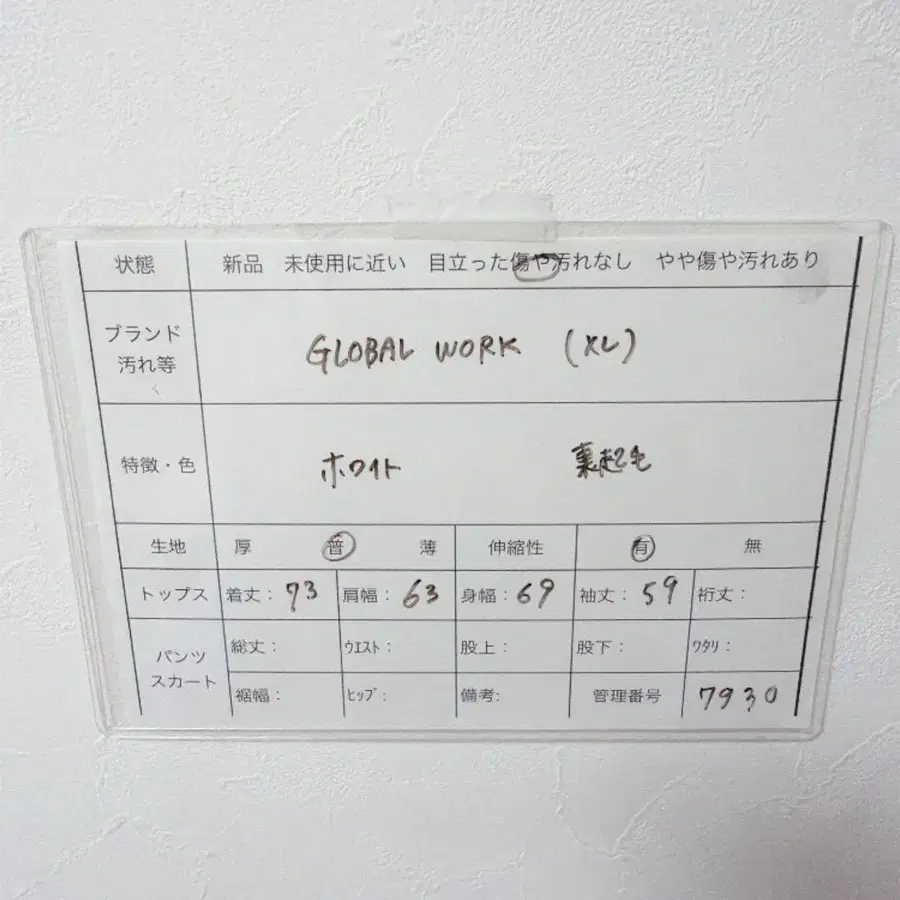 状態 新品 未使用に近い 目立った傷や汚れなし やや傷や汚れあり
ブランド
汚れ等
GLOBAL WORK (XL)
特徴・色 ホワイト 裏起毛
生地 厚 普 薄 伸縮性 有 無
トップス 着丈: 73 肩幅: 63 身幅: 69 袖丈: 59 裄丈:
パンツ
スカート
総丈: ウエスト: 股上: 股下: ワタリ:
裾幅: ヒップ: 備考: 管理番号 7930